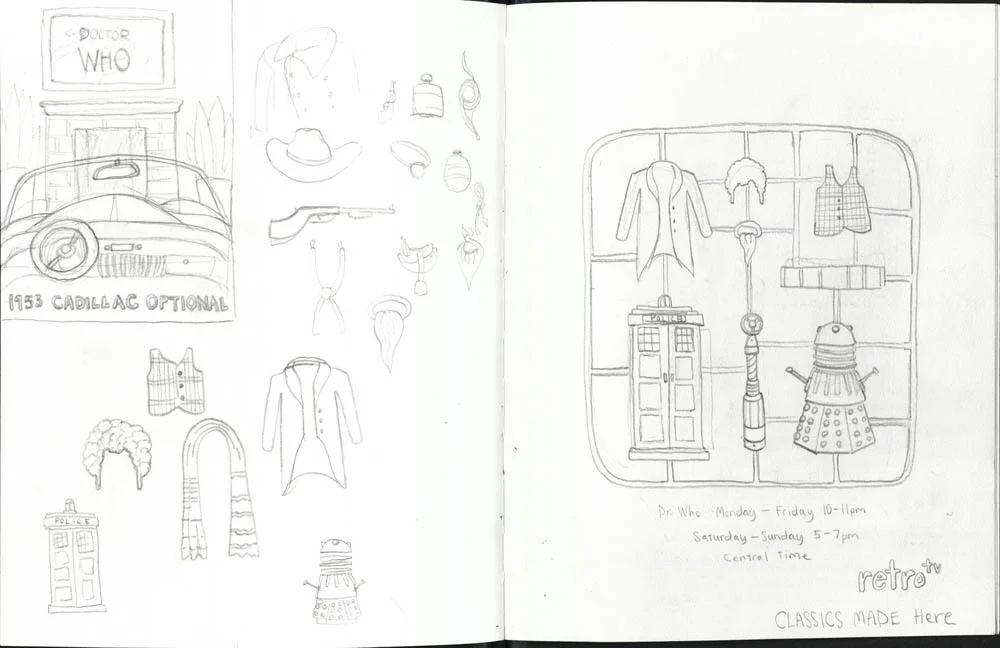 DOCTOR
WHO
1953 CADILLAC OPTIONAL
POLICE
POLICE
Dr. Who Monday - Friday 10-11pm
Saturday - Sunday 5-7pm
Central Time
retro tv
CLASSICS MADE Here